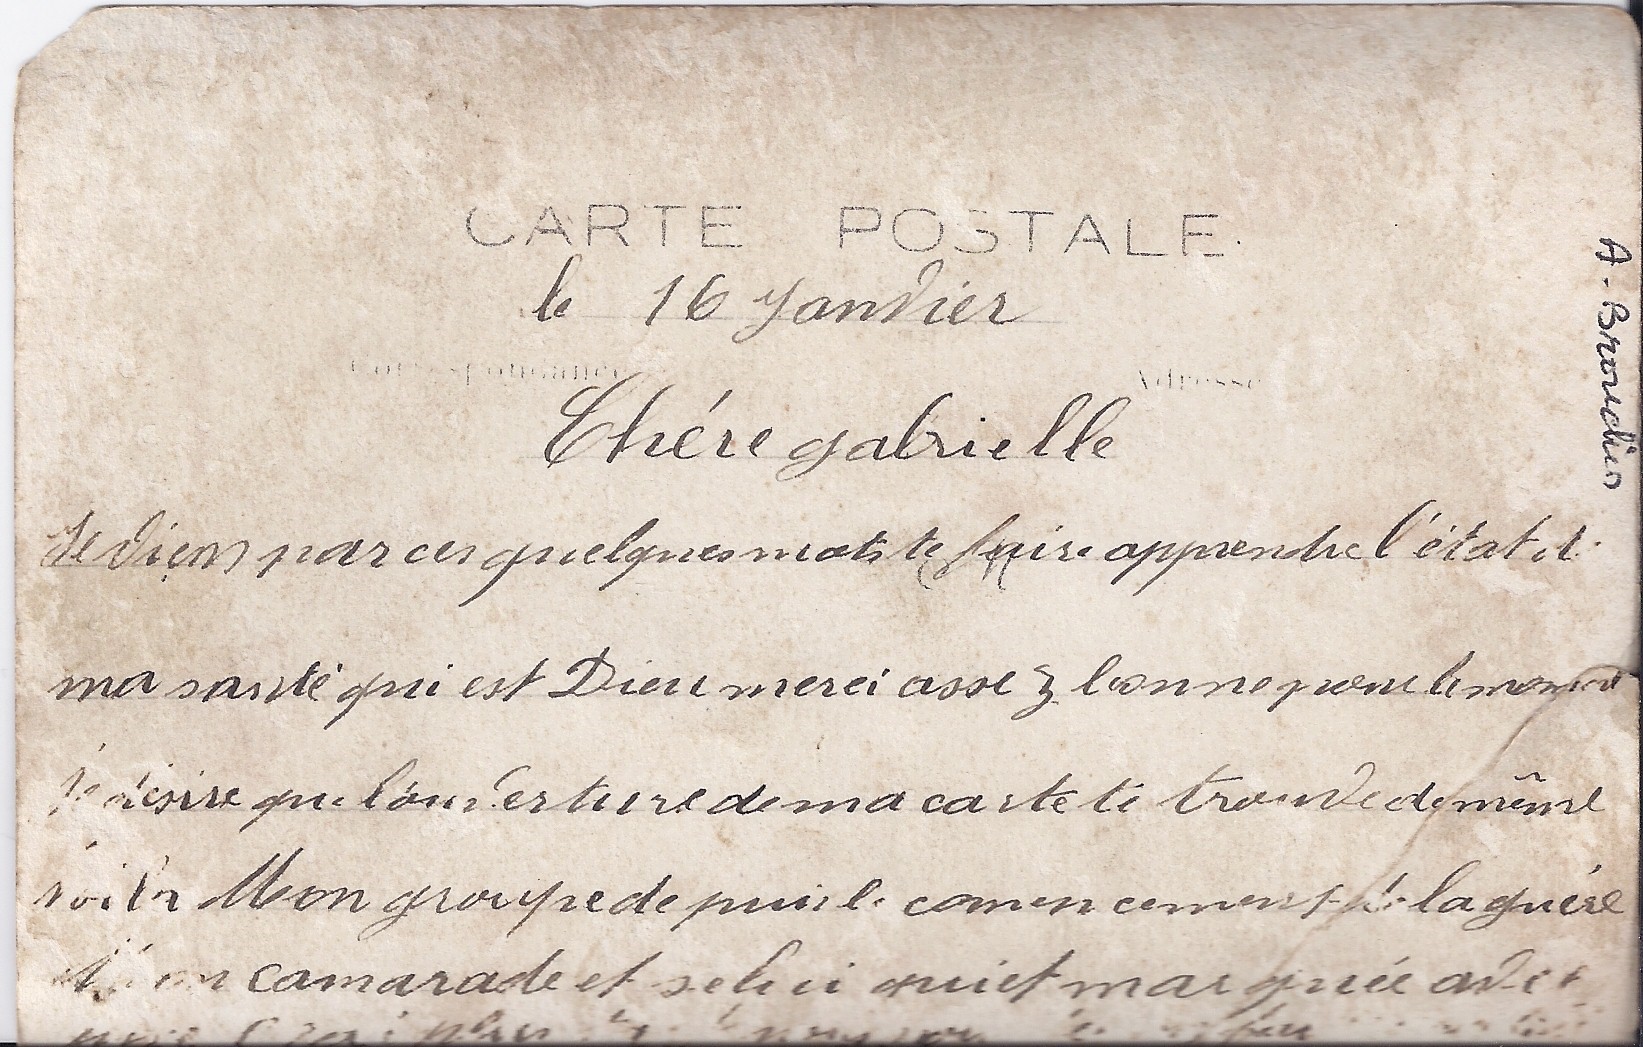 CARTE POSTALE
le 16 Janvier
Correspondance Adresse
Chére gabrielle
Je viens par ces quelques mots te faire apprendre l'état d
ma santé qui est Dieu merci assez bonne pour le moment
je désire que l'ouverture de ma carte te trouve de même
voila Mon groupe depuis le comencement de la guére
camarade et selui qui et marquée avec
A. Brouchin